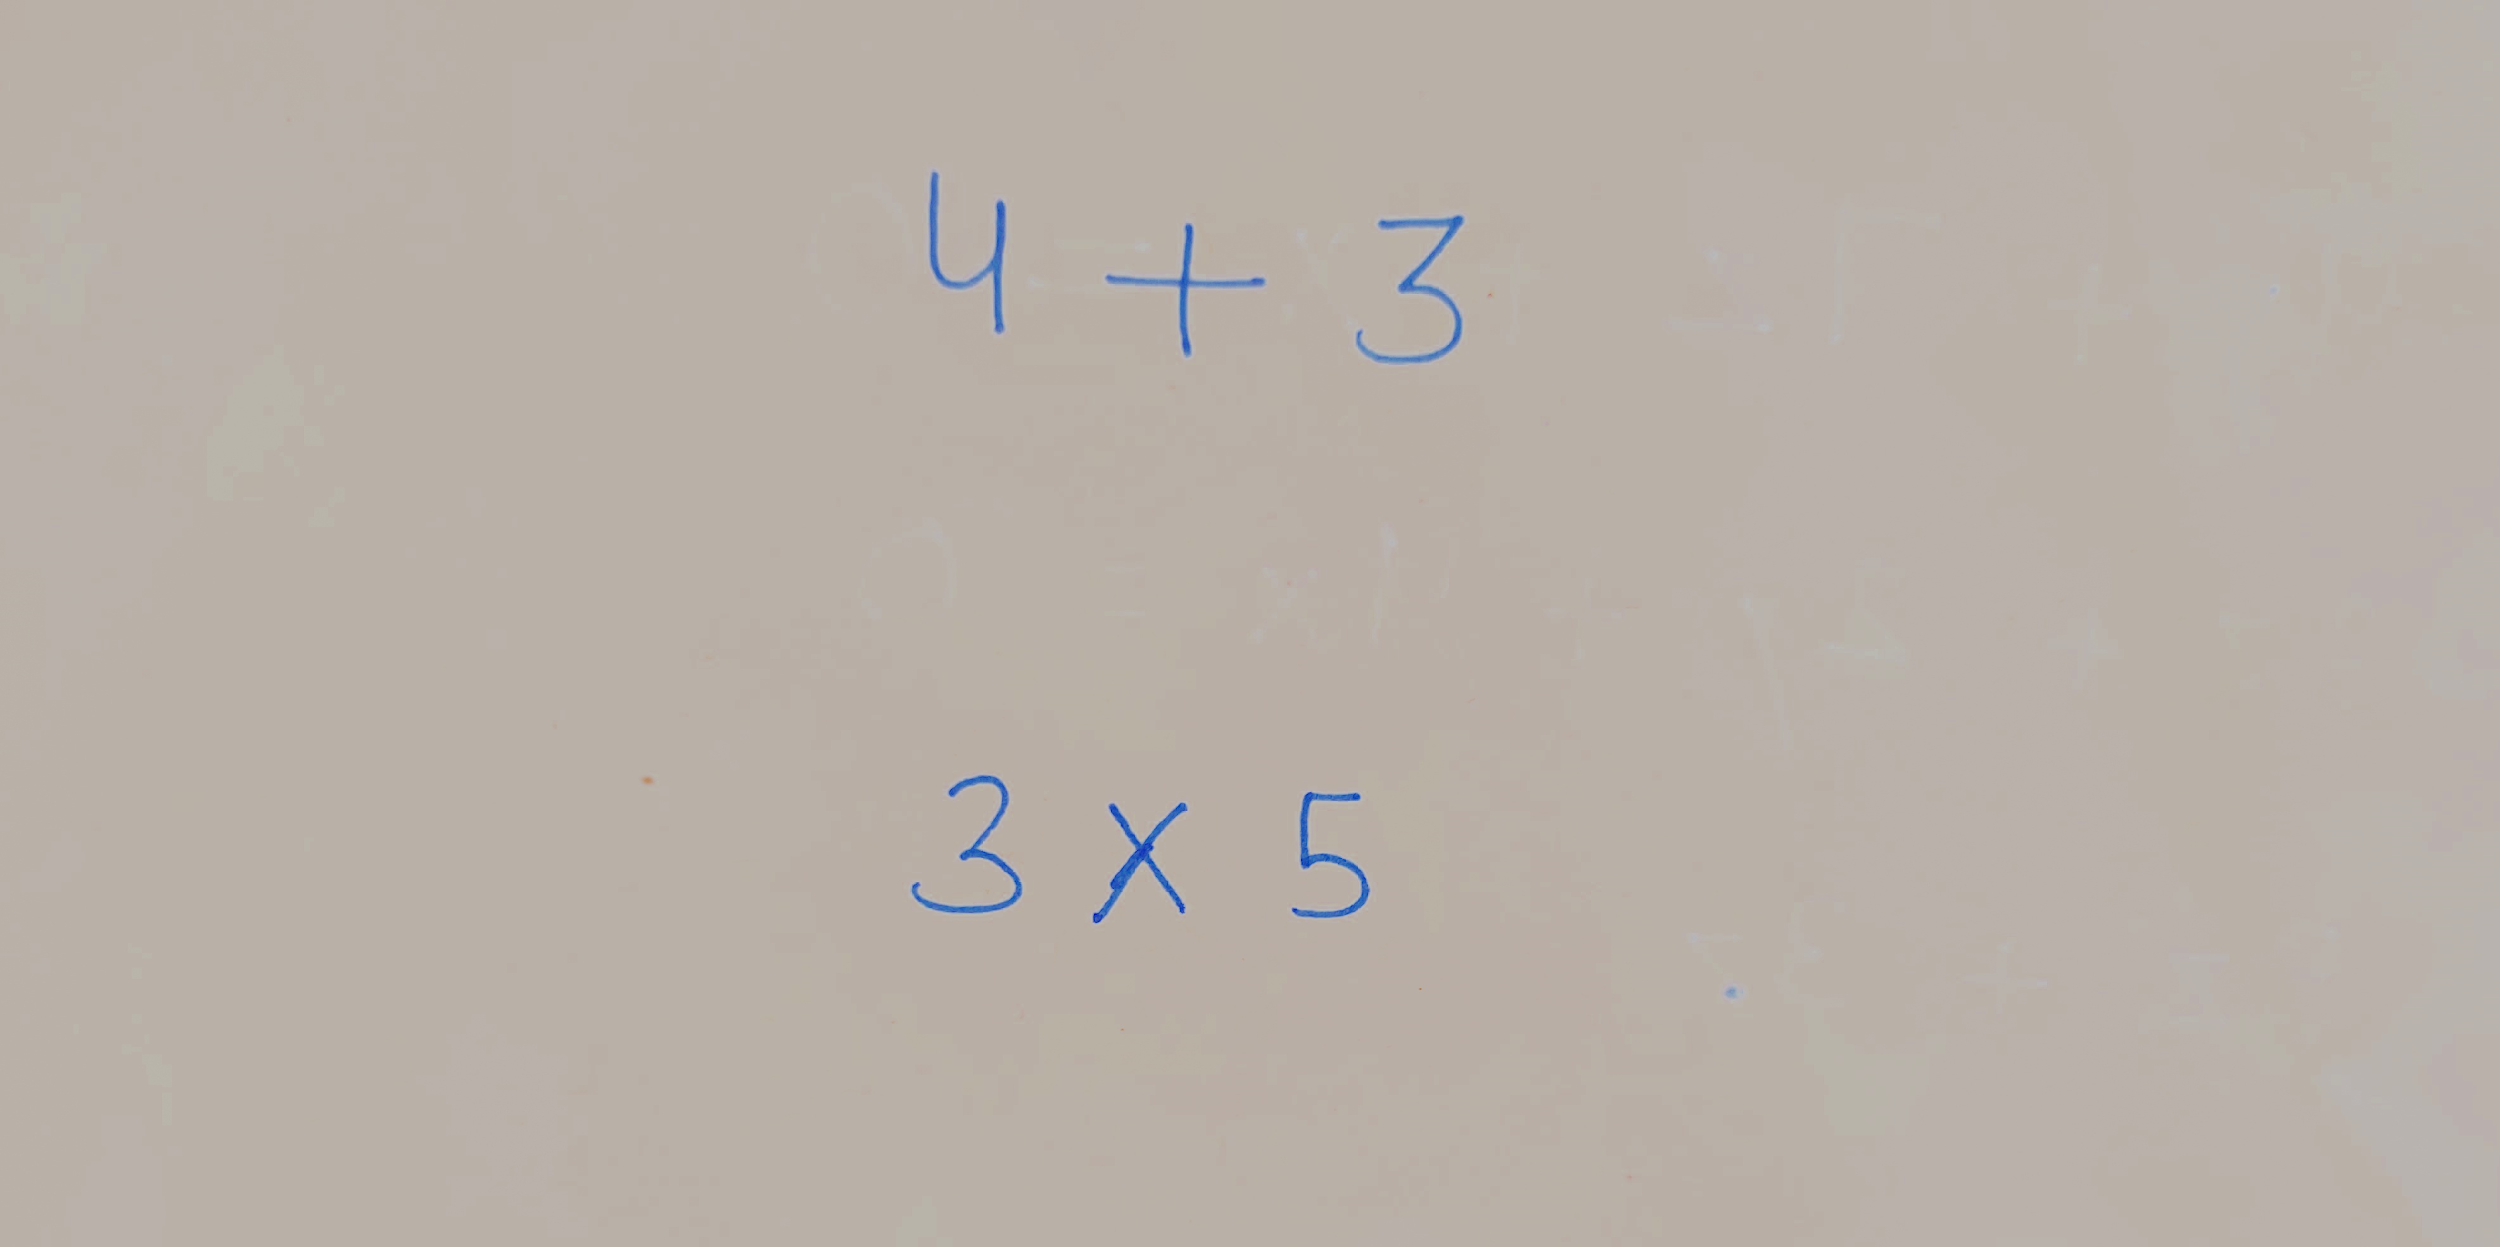 4 + 3
3 x 5